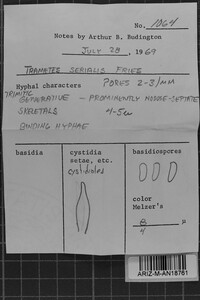 No. 1064
Notes by Arthur B. Budington
JULY 28, 1969
TRAMETES SERIALIS FRIES
Hyphal characters PORES 2-3/MM
TRIMITIC
GENERATIVE - PROMINENTLY NODOSE-SEPTATE
SKELETALS 4-5u
BINDING HYPHAE
basidia cystidia setae, etc. basidiospores
cystidioles
color
Melzer's
μ
ARIZ-M-AN18761